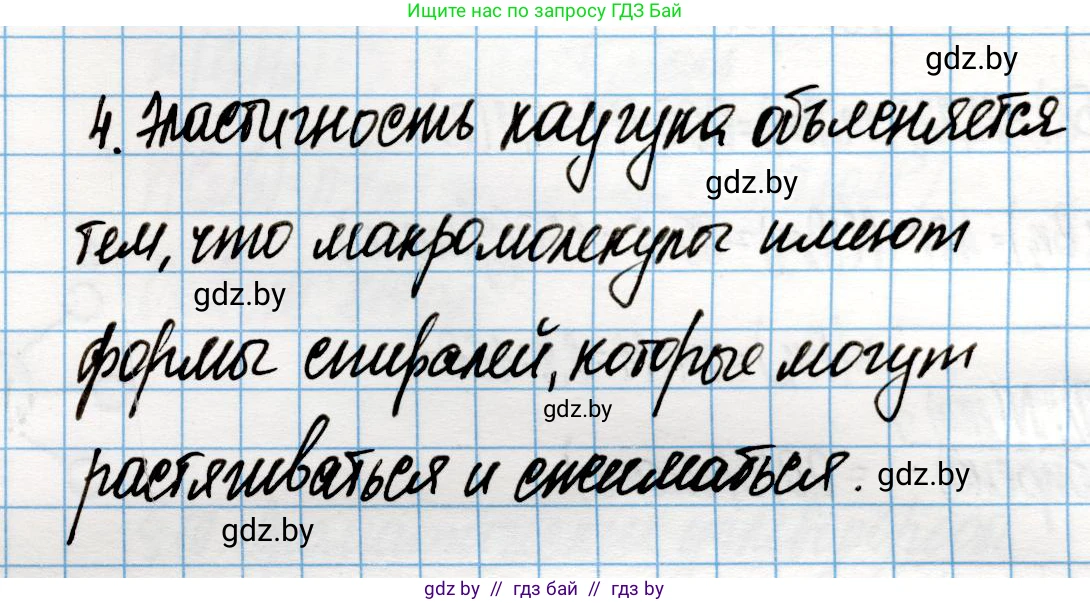 Ищите нас по запросу ГДЗ Бай
gdz.by
4. Эластичность каучука объясняется
gdz.by
тем, что макромолекулы имеют
gdz.by
формы спиралей, которые могут
gdz.by
растягиваться и сжиматься. gdz.by
gdz.by
gdz.by // гдз бай // гдз by